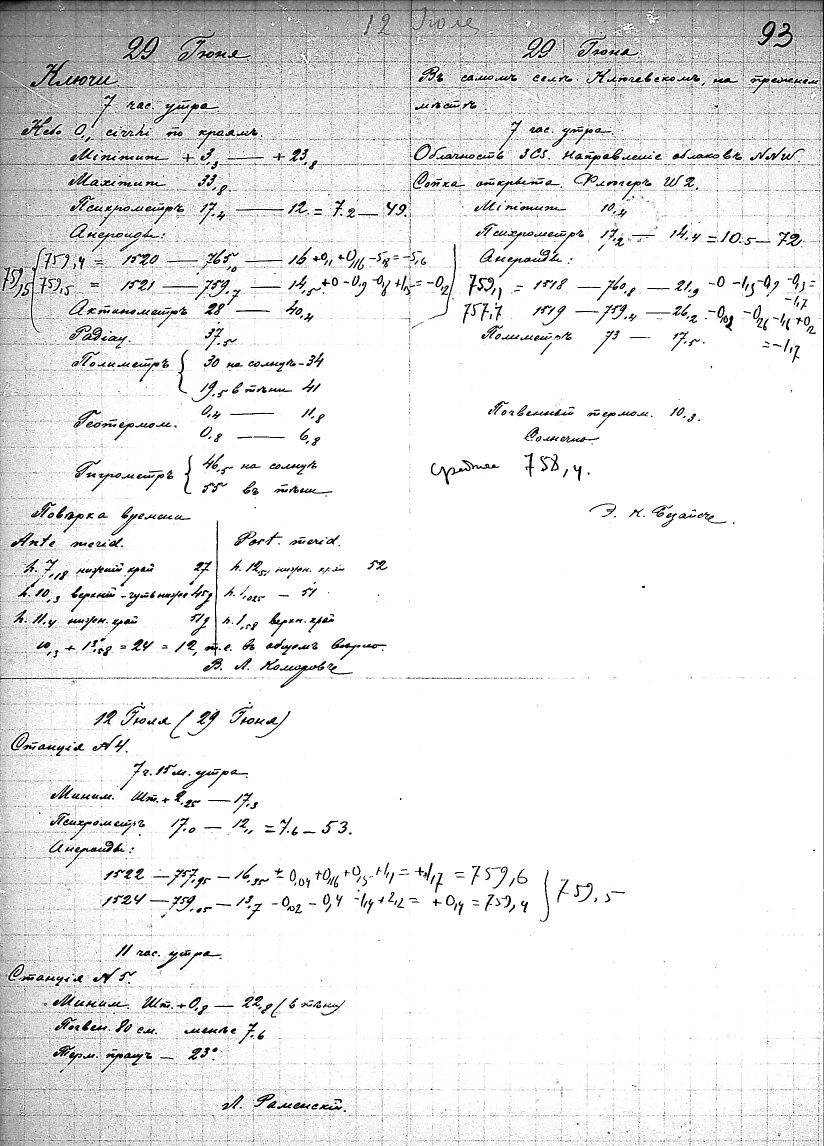 12 Іюле
93
29 Іюня
Ключи
7 час. утра.
Небо 0, cicchi по краямъ.
Minimum + 3,3 — + 23,8
Maximum 33,8
Психрометръ 17.4 — 12. = 7.2 — 49.
Анероиды:
759,4 = 1520 — 765,0 — 16 +0,1 +0,16 -5,8 = -5,6
759,5 = 1521 — 759,7 — 14,5 +0 -0,9 -0,8 +1,5 = -0,2
759,5
Актинометръ 28 — 40,4
Радіац. 37,5
Полиметръ { 30 на солнцѣ - 34
19,5 в тѣни 41
Геотермом. 0,4 — 11,8
0,8 — 6,8
Гигрометръ { 46,5 на солнцѣ
55 въ тѣни
Повѣрка времени
Ante merid.
h. 7,18 нижній край 27
h. 10,3 верхній - чуть ниже 45g
h. 11,4 нижн. край 51g
Post. merid.
h. 12,51 нижн. край 52
h. 1,025 — 51
h. 1,58 верхн. край
10,3 + 13,58 = 24 = 12, т.е. въ общемъ вѣрно.
В. Л. Комаровъ
29 Іюня
Въ самомъ селѣ Ключевскомъ, на прежнем
мѣстѣ.
7 час. утра.
Облачность 3CS. Направленіе облаковъ NNW.
Сопка открыта. Флюгеръ W 2.
Minimum 10,4
Психрометръ 17,2 — 14,4 = 10.5 — 72
Анероиды:
759,1 = 1518 — 760,8 — 21,9 -0 -1,3 -0,9 -0,3 =
-1,7
757,7 1519 — 759,4 — 26,2 -0,02 -0,26 -1,6 +0,2
= -1,7
Полиметръ 73 — 17,5.
Почвенный термом. 10,3.
Солнечно.
среднее 758,4.
12 Іюля (29 Іюня)
Станція N 4.
7 ч. 15 м. утра
Миним. Шт. + 2,25 — 17,3
Психрометръ 17,0 — 12,1 = 7.6 — 53.
Анероиды:
1522 — 757,95 — 16,35 ± 0,04 +0,16 +0,5 +1,1 = +1,7 = 759,6
1524 — 759,05 — 13,7 -0,02 -0,4 -1,4 +2,2 = +0,4 = 759,4
759,5
11 час. утра.
Станція N 5.
Миним. Шт. + 0,8 — 22,8 (в тѣни)
Почвен. 80 см. менѣе 7.6
Терм. пращъ — 23°.
Л. Раменскій.